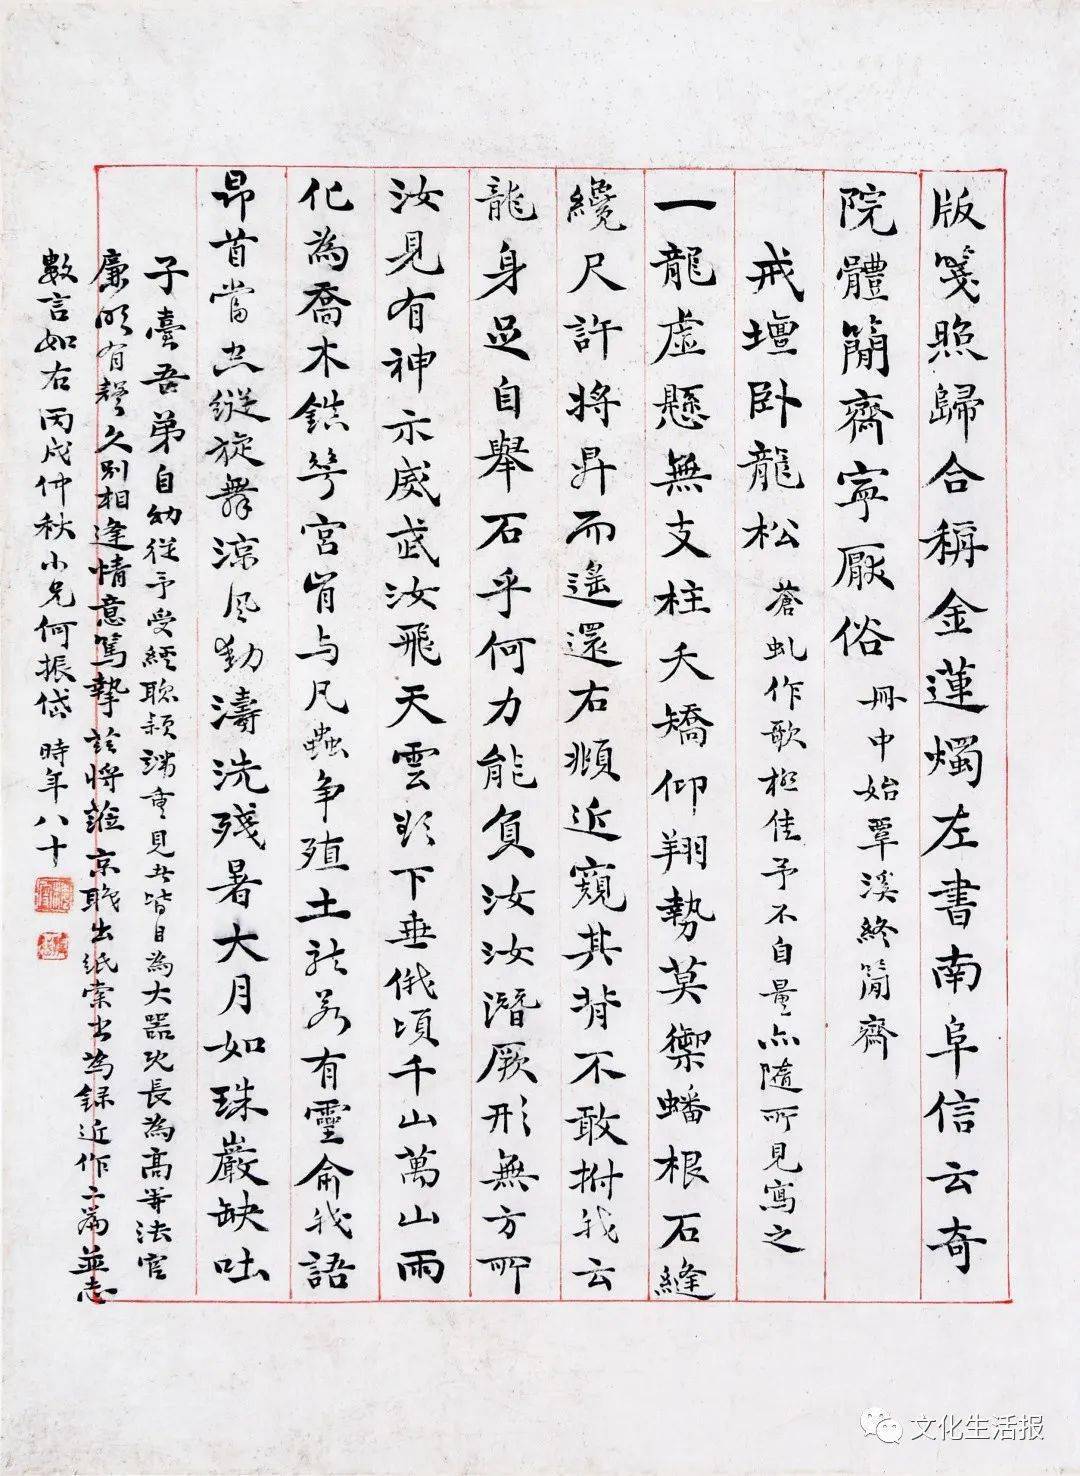 版箋照歸合稱金蓮燭左書南阜信云奇
院體簡齋寧厭俗 冊中始覃溪終簡齋
戒壇卧龍松 蒼虬作歌極佳予不自量亦隨所見寫之
一龍虛懸無支柱夭矯仰翔勢莫禦蟠根石縫
纔尺許將昇而遙還右瀕近窺其背不敢拊我云
龍身足自舉石乎何力能負汝汝潛厥形無方所
汝見有神示威武汝飛天雲欲下垂俄頃千山萬山雨
化為喬木鎮等宮肯与凡蟲争殖土龍若有靈俞我語
昂首當空縱旋舞涼风動濤洗殘暑大月如珠巖缺吐
子臺吾弟自幼從予受經聰颖端重見者皆目為大器既長為高等法官
廉明有聲久别相逢情意篤摯茲將蒞京職出紙索書為録近作二篇並志
數言如右丙戌仲秋小兄何振岱時年八十
文化生活报